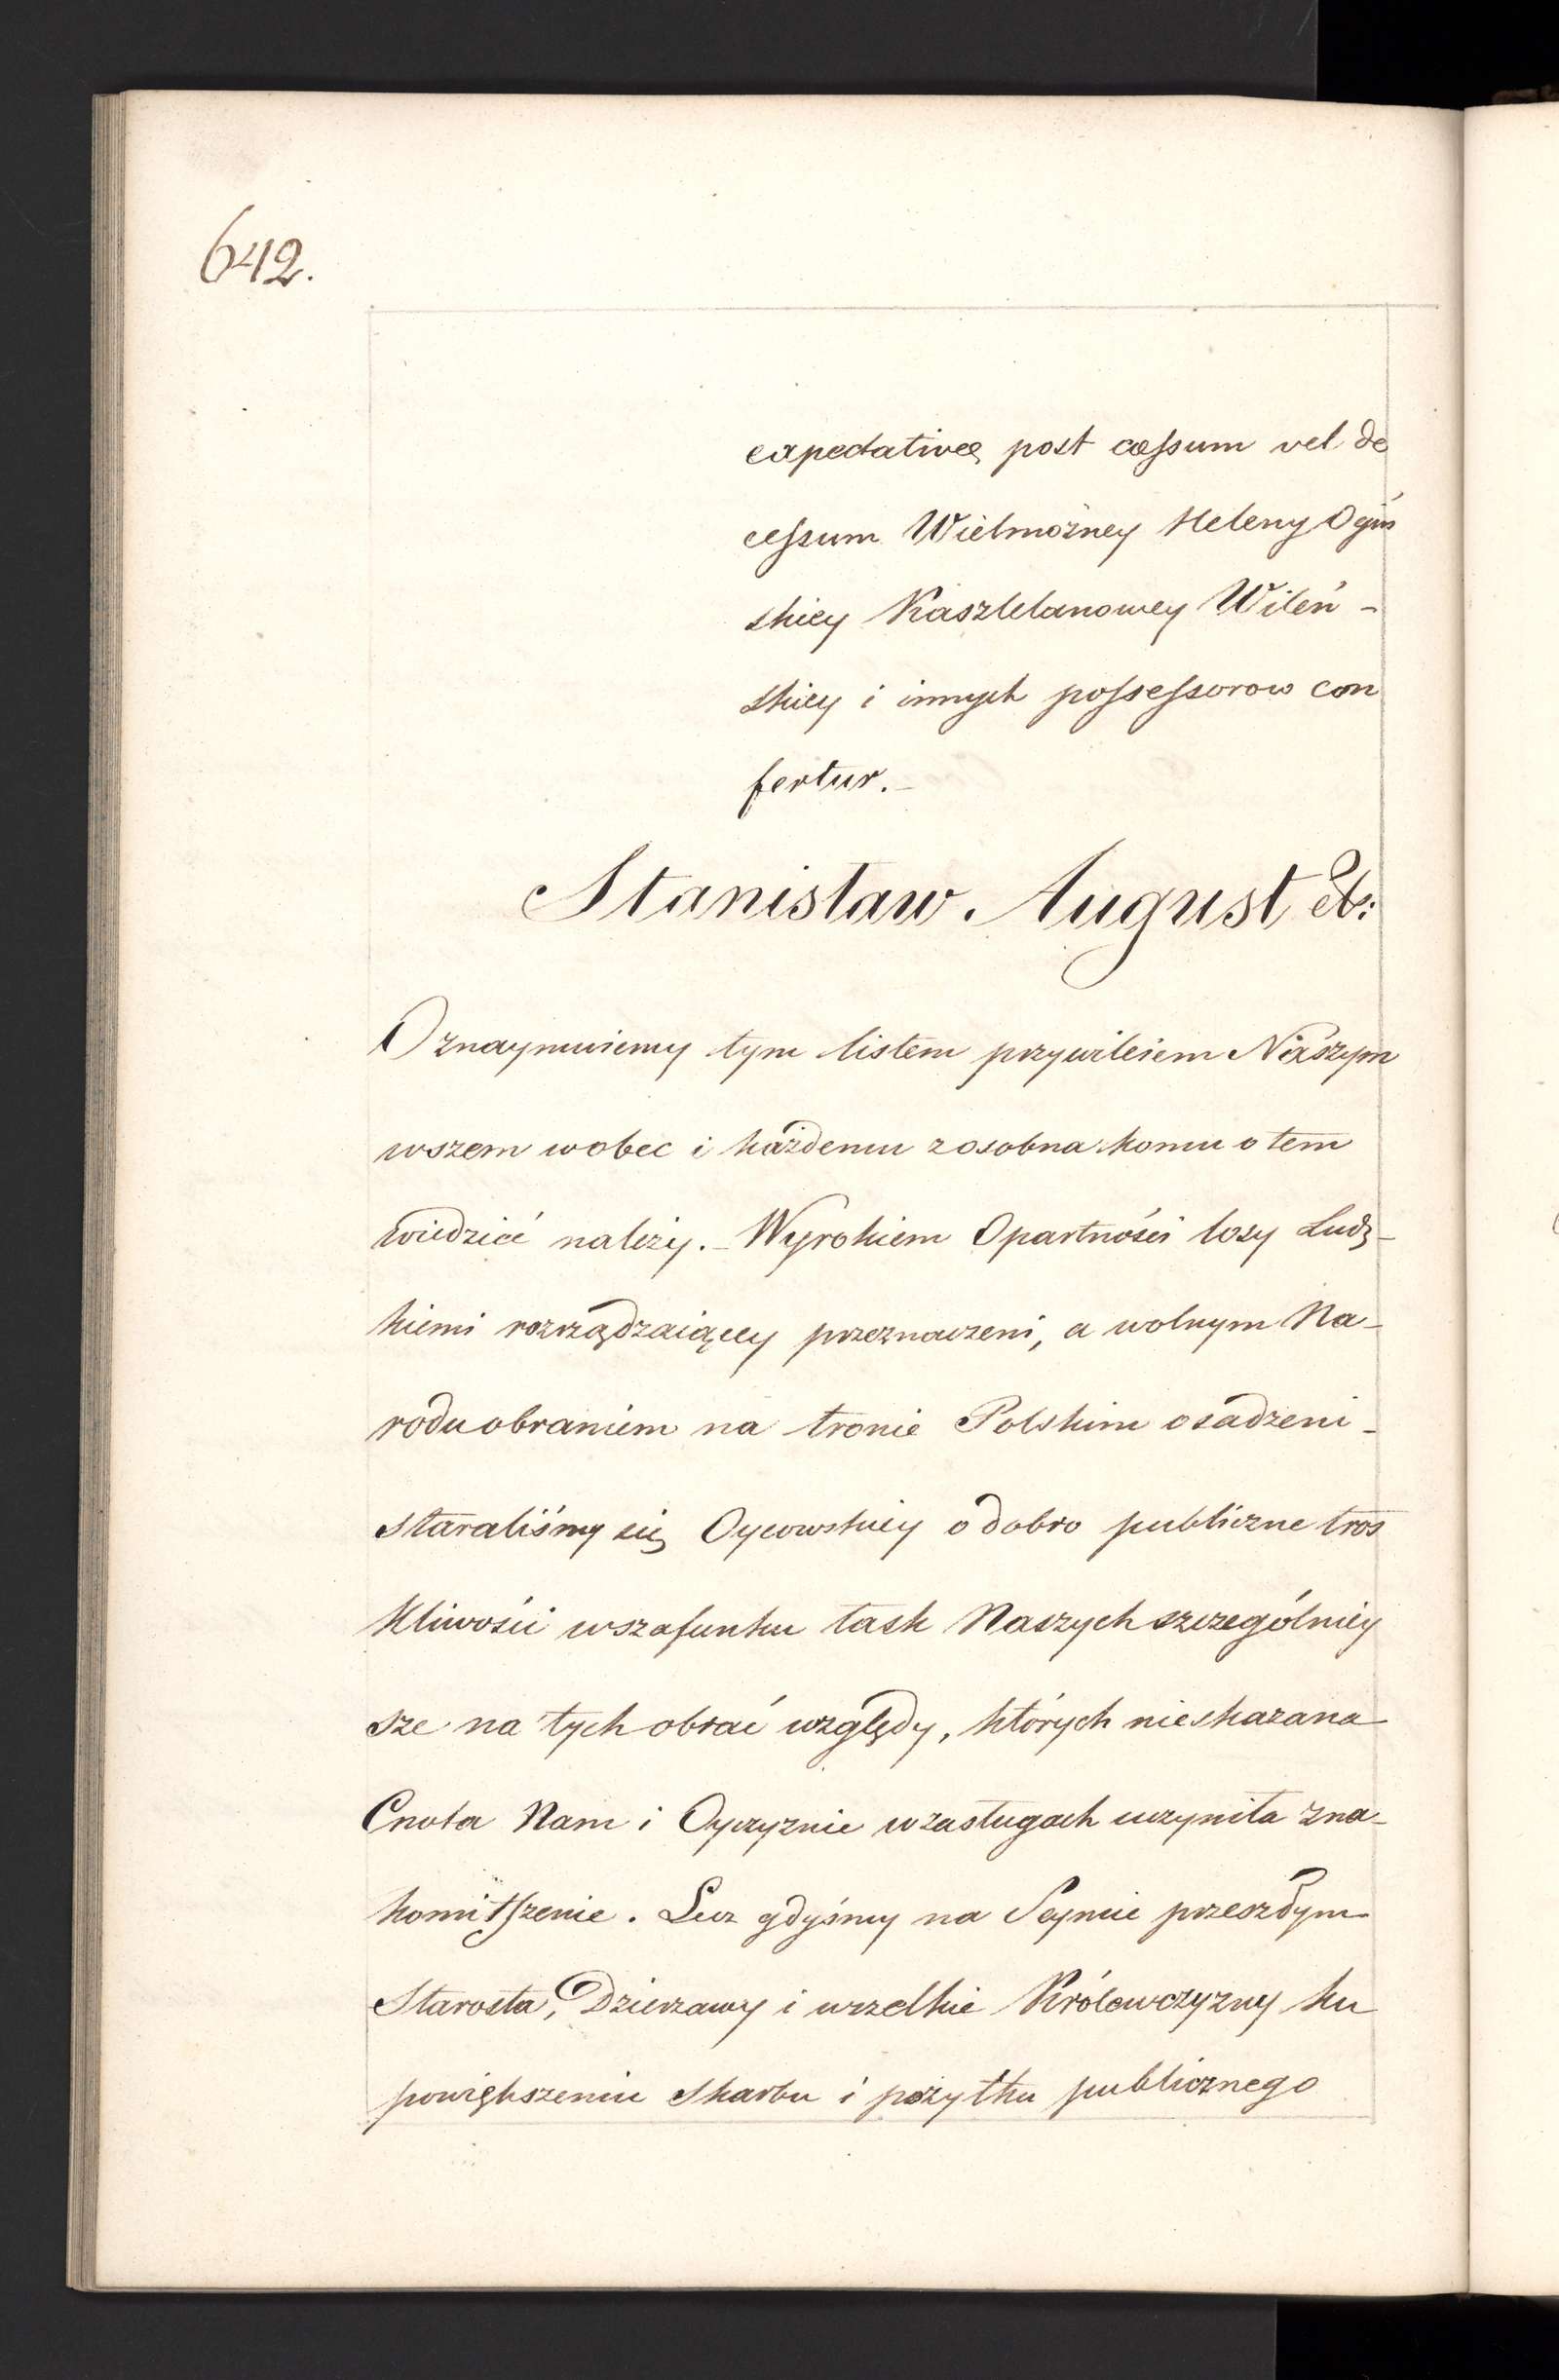 642.
expectativé post cessum vel de
cessum Wielmożney Heleny Ogiń
skiey Kasztelanowey Wileń -
skiey i innych possessorow con
fertur. -
Stanisław August etc:
Oznaymuiemy tym listem przywileiem Naszym
wszem wobec i każdemu zosobna komu o tem
wiedzieć należy. - Wyrokiem Opartności losy Ludz-
kiemi rozrządzaiącey przeznaczeni, a wolnym Na-
rodu obraniem na tronie Polskim osadzeni -
staraliśmy się Oycowskiey o dobro publiczne tros
kliwości wszafunku łask Naszych szczególniey
sze na tych obrać względy, których nieskazana
Cnota Nam i Oyczyznie w zasługach uczyniła zna-
komitszenie. Lecz gdyśmy na Seymie przeszłym
Starosta, Dzierzawy i wszelkie Królewczyzny ku
powiększeniu Skarbu i pożytku publicznego